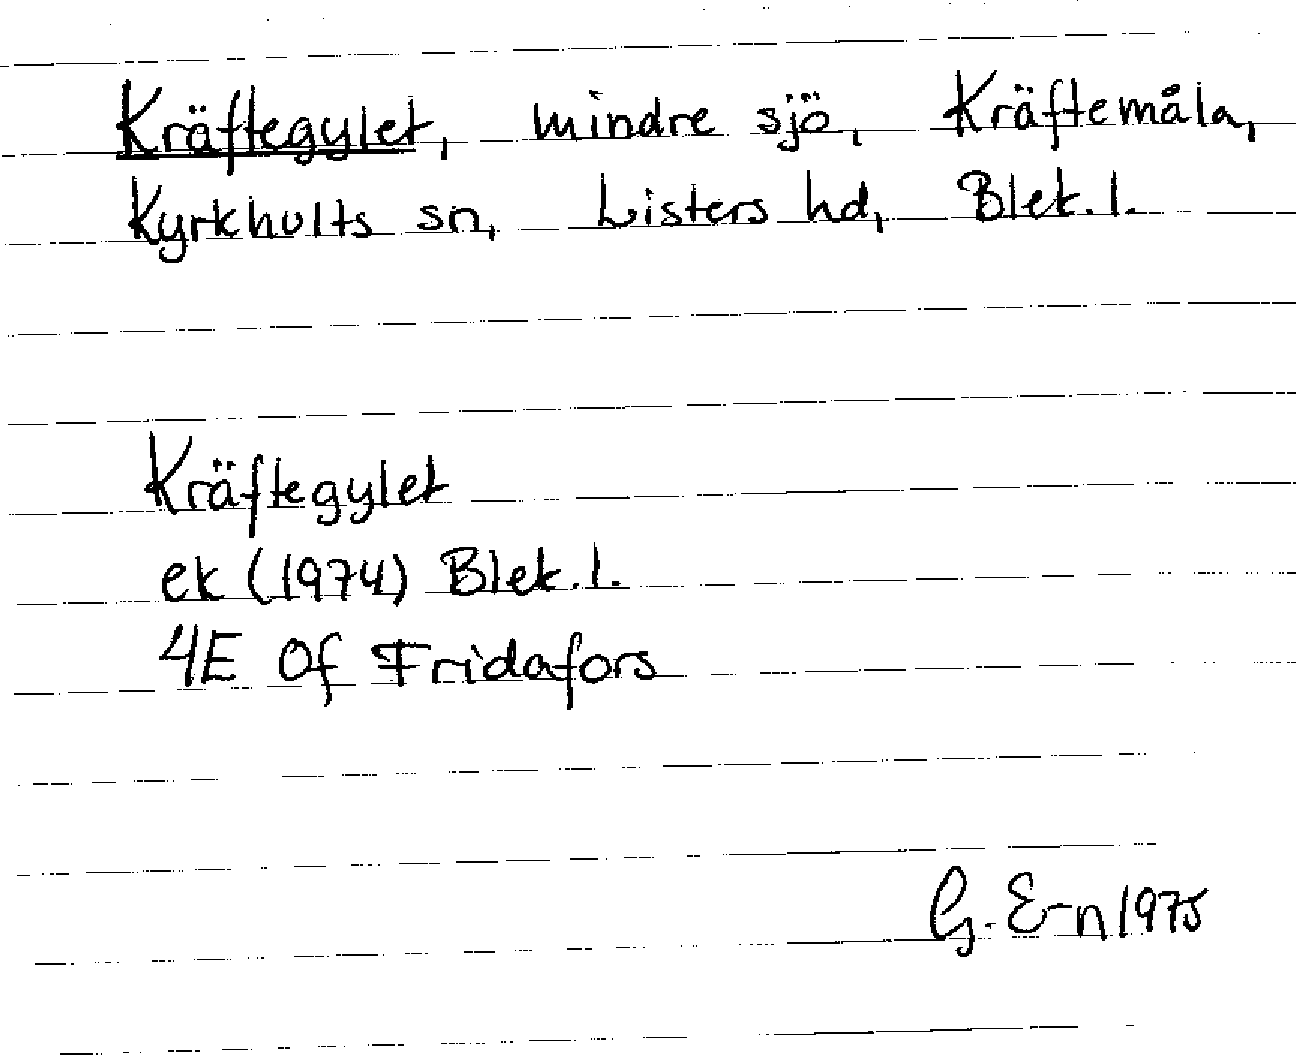 Kräftegylet, mindre sjö, Kräftemåla,
Kyrkhults sn, Listers hd, Blek. l.
Kräftegylet
ek (1974) Blek. l.
4E 0f Fridafors
G. E-n 1975